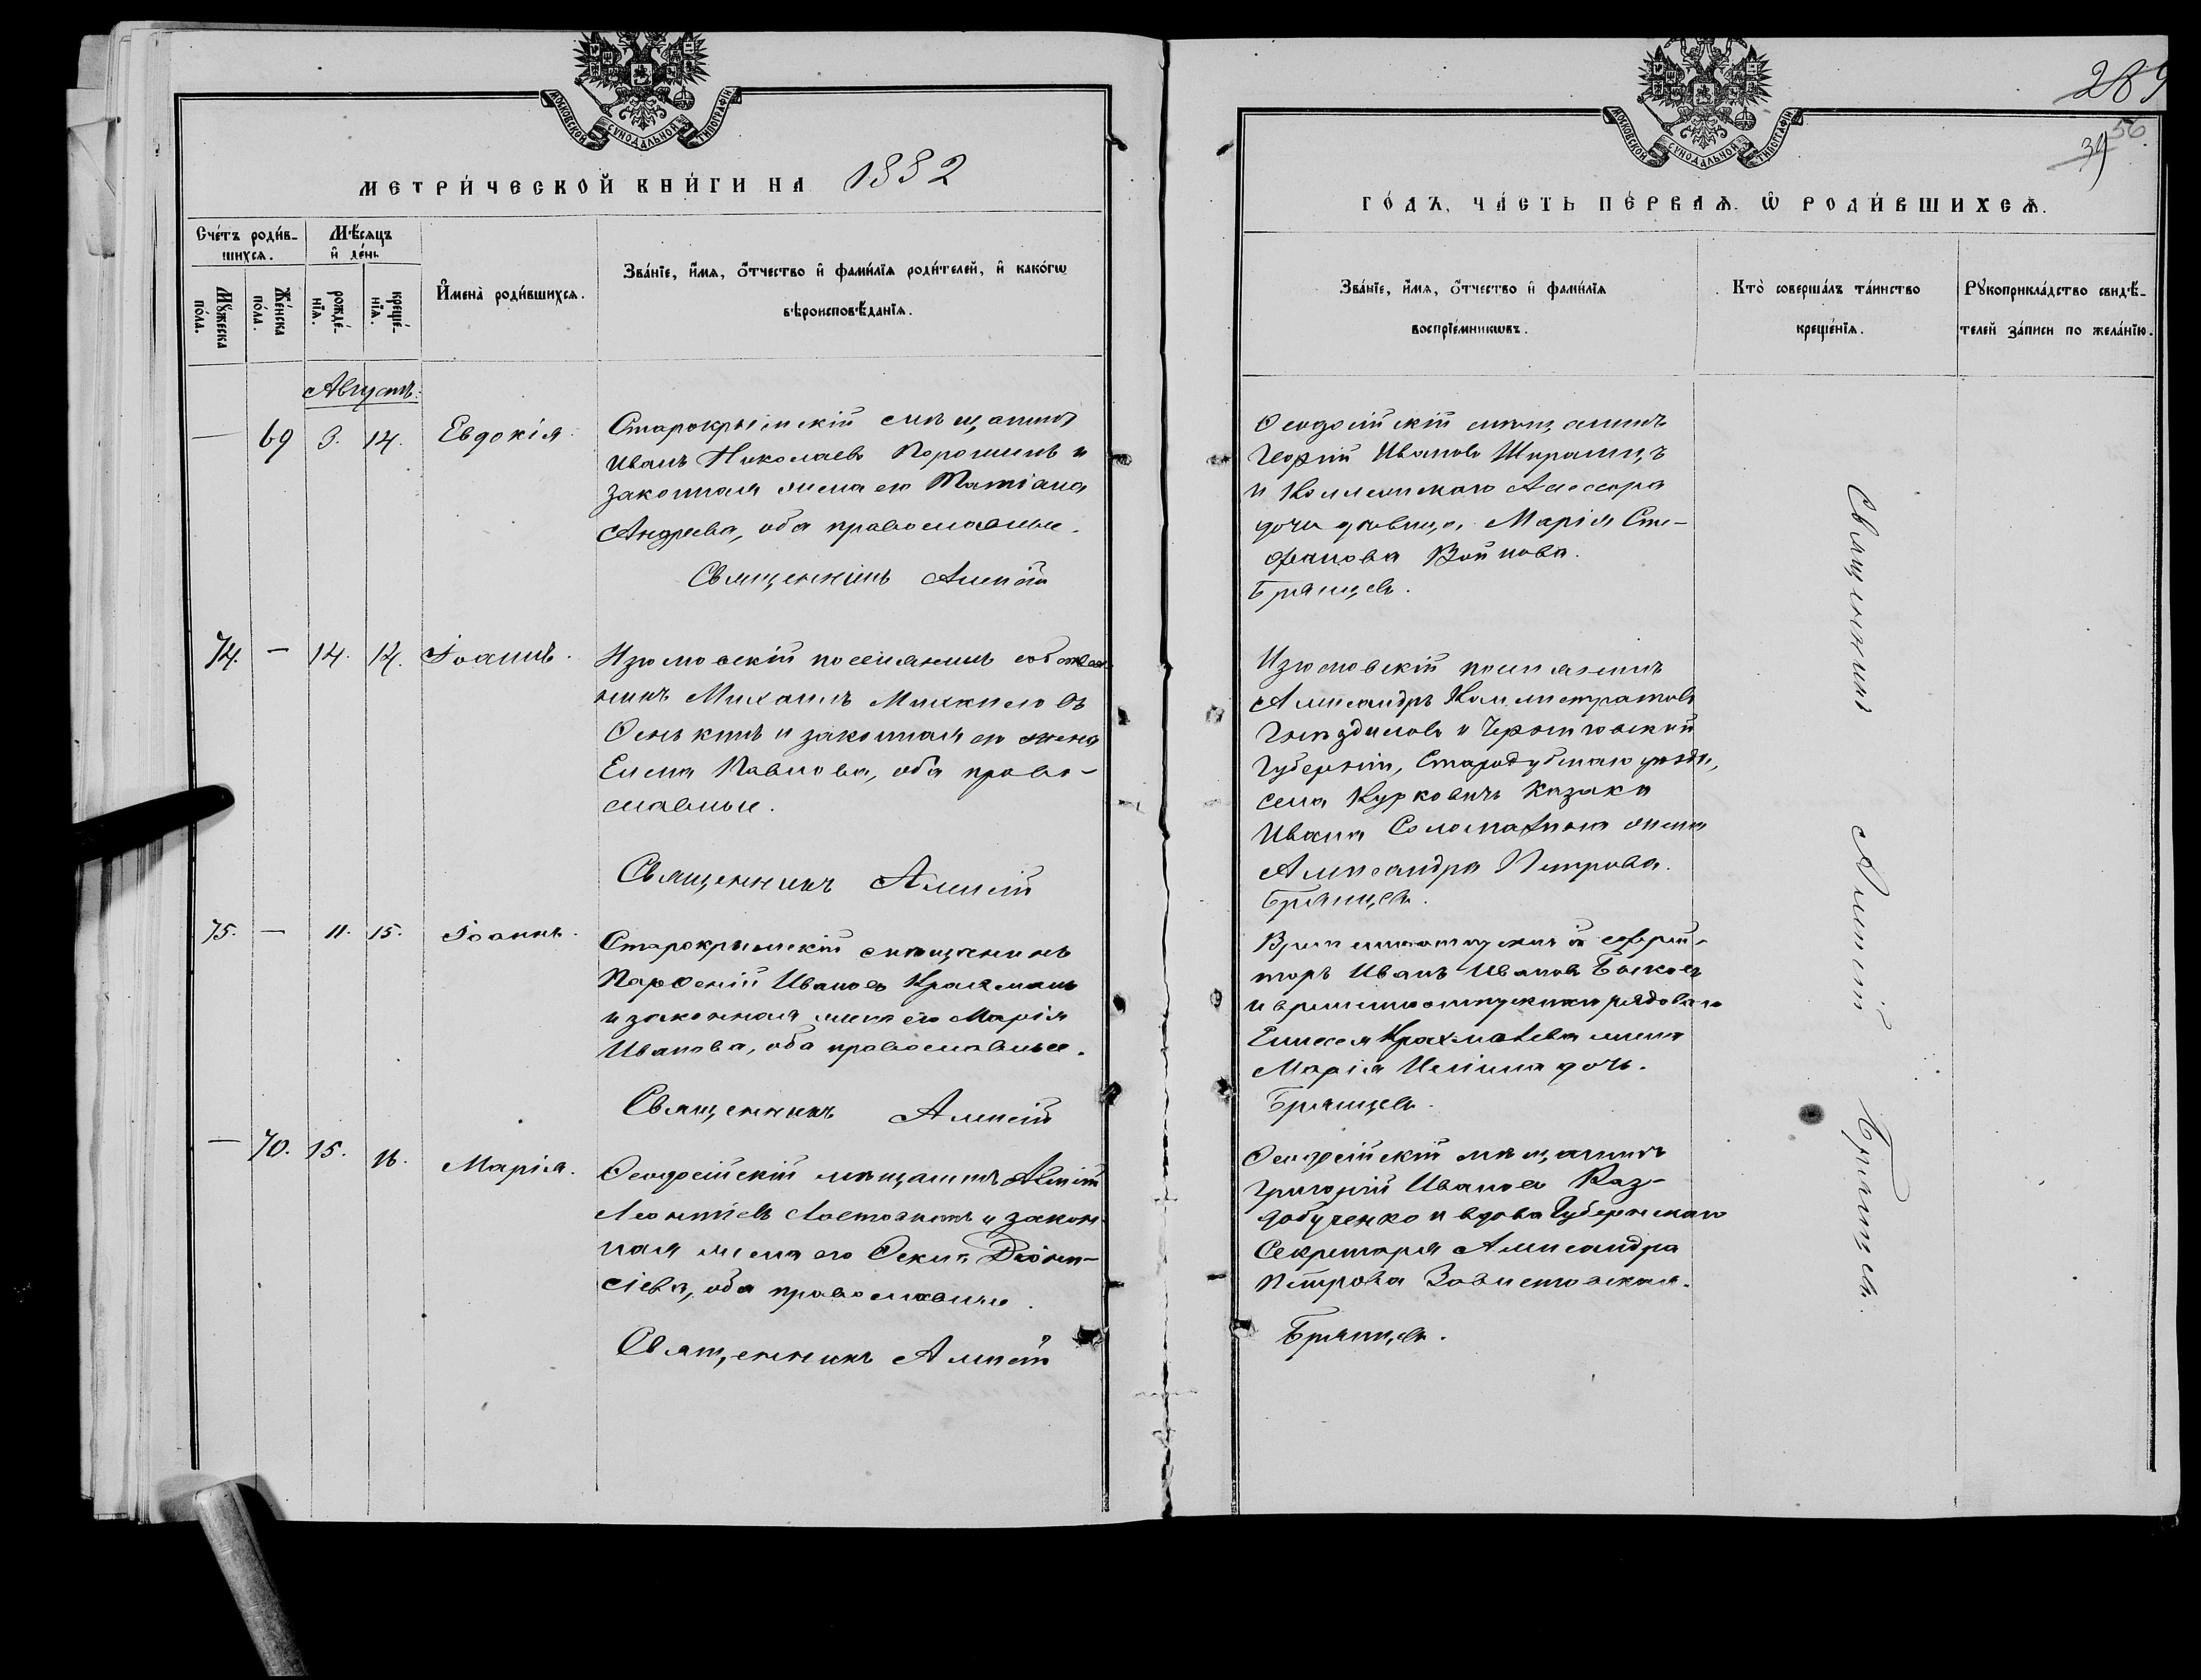 МОСКОВСКОЙ СѴНОДАЛЬНОЙ ТИПОГРАФІИ
МЕТРИ́ЧЕСКОЙ КНИ́ГИ НА 1882
Сче́тъ роди́в-
шихся.
Мѣ́сяцъ
и҆ де́нь
Мꙋ́жеска
по́ла.
Же́нска
по́ла.
рожде́-
нїѧ.
креще́-
нїѧ.
И҆мена̀ роди́вшихсѧ.
Зва́нїе, и҆́мѧ, ѻ҆́тчество и҆ фами́лїѧ роди́телей, и҆ како́гѡ
вѣроисповѣ́данїѧ.
Августъ.
— 69 3. 14. Евдокія.
Старокрымскій мѣщанинъ
Иванъ Николаевъ Порошинъ и
законная жена его Татіана
Андреева, оба православные.
Священникъ Алексій
74. — 14. 14. Іоаннъ.
Изюмовскій поселянинъ собствен
никъ Михаилъ Михаиловъ
Сенькинъ и законная его жена
Елена Павлова, оба право-
славные.
Священникъ Алексій
75. — 11. 15. Іоаннъ.
Старокрымскій мѣщанинъ
Парѳеній Ивановъ
и законная жена его Марія
Иванова, оба православные.
Священникъ Алексій
— 70. 15. 16. Марія.
Ѳеодосійскій мѣщанинъ Алексій
Леонтіевъ и закон-
ная жена его Ѳекла Діони-
сіева, оба православные.
Священникъ Алексій
289
39 56.
МОСКОВСКОЙ СѴНОДАЛЬНОЙ ТИПОГРАФІИ
ГО́ДЪ, ЧА́СТЬ ПЕ́РВАѦ. Ѡ҆ РОДИ́ВШИХСѦ.
Зва́нїе, и҆́мѧ, ѻ҆́тчество и҆ фами́лїѧ
воспрїе́мникѡвъ.
Кто̀ соверша́лъ та́инство
креще́нїѧ.
Рꙋкоприкла́дство свидѣ́-
телей за́писи по жела́нїю.
Ѳеодосійскій мѣщанинъ
Георгій Ивановъ
и Коллежскаго Ассесора
дочь дѣвица, Марія Сте-
фанова Войнова.
Брянцевъ.
Изюмовскій поселянинъ
Александръ Каллистратовъ
Гнездиловъ и Черниговской
Губерніи, Стародубскаго уѣзда,
села Курковичъ казака
Ивана жена
Александра Петрова.
Брянцевъ.
Временноотпускной ефрей-
торъ Иванъ Ивановъ
и временноотпускнаго рядоваго
Елисея жена
Марія дочь.
Брянцевъ.
Ѳеодосійскій мѣщанинъ
Григорій Ивановъ Раз-
добученко и вдова Губернскаго
Секретаря Александра
Петрова Завистовская.
Брянцевъ.
Священникъ Алексій Брянцевъ.